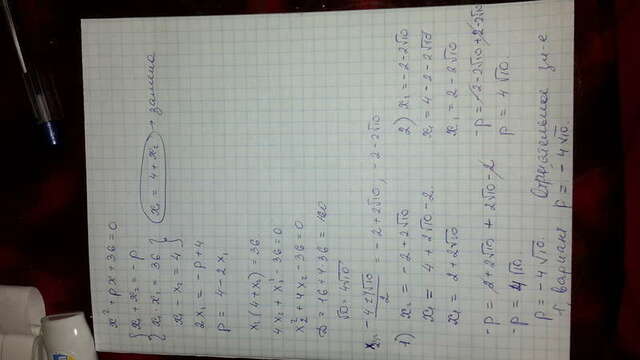 x² + px + 36 = 0
{ x₁ + x₂ = -p
{ x₁ x₂ = 36 }
x₁ - x₂ = 4 }
x₁ = 4 + x₂ → замена
2x₁ = -p + 4
p = 4 - 2x₁
x₁(4 + x₂) = 36
4x₂ + x₂² - 36 = 0
x₂² + 4x₂ - 36 = 0
D = 16 + 4·36 = 160
√D = 4√10
x₂ = -4 ± 4√10 / 2 = -2 + 2√10; -2 - 2√10
1) x₂ = -2 + 2√10
x₁ = 4 + 2√10 - 2
x₁ = 2 + 2√10
-p = 2 + 2√10 + 2√10 - 2
-p = 4√10
p = -4√10
1 вариант
2) x₂ = -2 - 2√10
x₁ = 4 - 2 - 2√10
x₁ = 2 - 2√10
-p = -2 - 2√10 + 2 - 2√10
p = 4√10
Отрицательное зн-е
p = -4√10